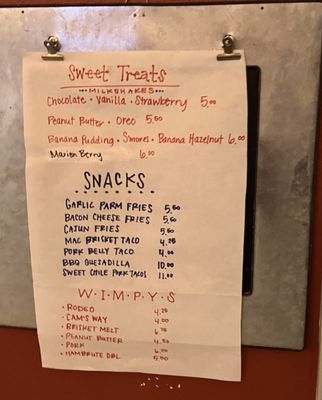 Sweet Treats
MILKSHAKES
Chocolate • Vanilla • Strawberry 5.00
Peanut Butter • Oreo 5.50
Banana Pudding • Smores • Banana Hazelnut 6.00
Marion Berry 6.00
SNACKS
GARLIC PARM FRIES 5.50
BACON CHEESE FRIES 5.50
CAJUN FRIES 5.50
MAC BRISKET TACO 4.25
PORK BELLY TACO 4.00
BBQ QUEZADILLA 10.00
SWEET CHILE PORK TACOS 11.00
W•I•M•P•Y•S
• RODEO 4.25
• CAM'S WAY 4.00
• BRISKET MELT
• PEANUT BUTTER 4.50
• PORK 6.00
• HAMBRUTE DBL 5.50